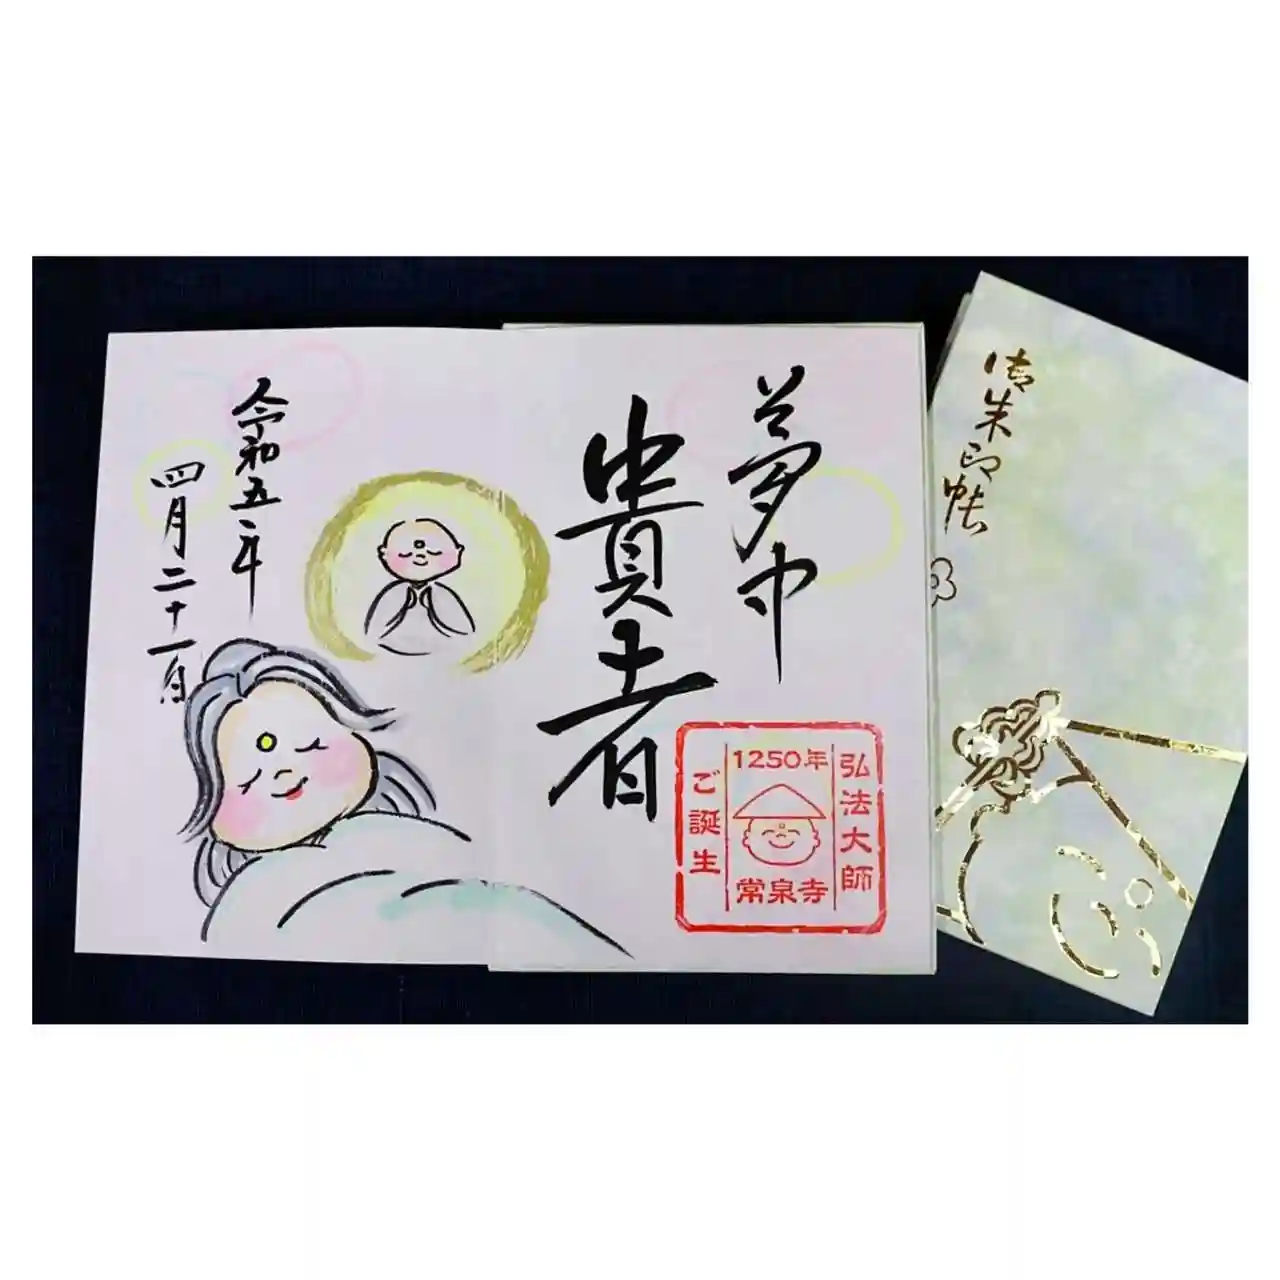 夢中
貴者
令和五年
四月二十一日
弘法大師
1250年
ご誕生
常泉寺
御朱印帳